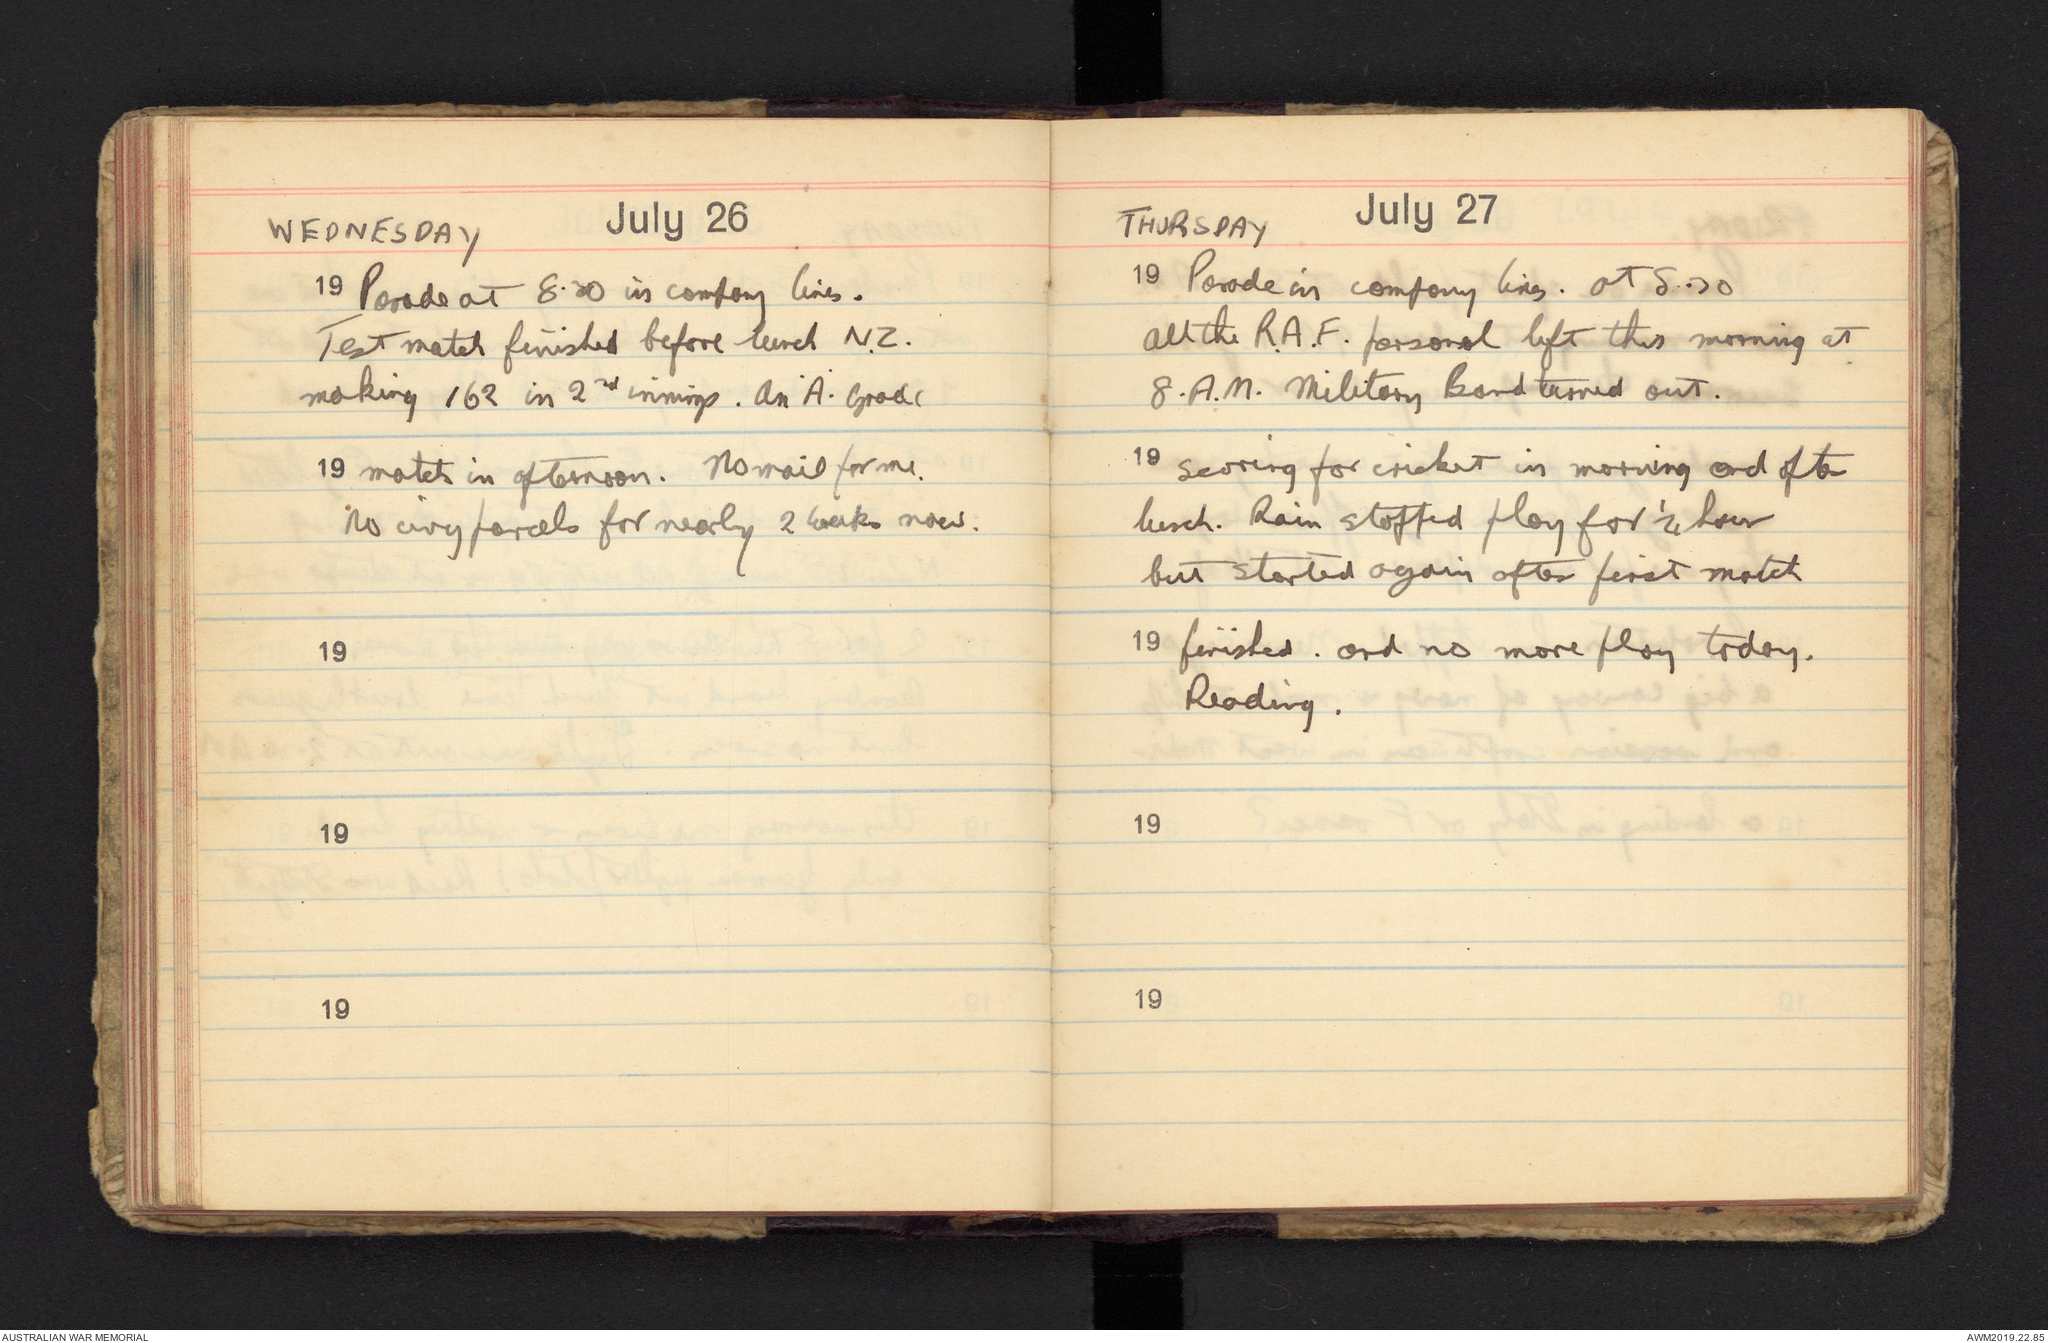 WEDNESDAY July 26
19 Parade at 8.30 in company lines.
Test match finished before lunch N.Z.
making 162 in 2nd innings. An A. Grade
19 match in afternoon. No mail for me.
No civy parcels for nearly 2 weeks now.
19
19
19
THURSDAY July 27
19 Parade in company lines. at 8.30
all the R.A.F. personal left this morning at
8. A.M. Military Band turned out.
19 scoring for cricket in morning and after
lunch. Rain stopped play for ½ hour
but started again after first match
19 finished. and no more play today.
Reading.
19
19
AUSTRALIAN WAR MEMORIAL
AWM2019.22.85